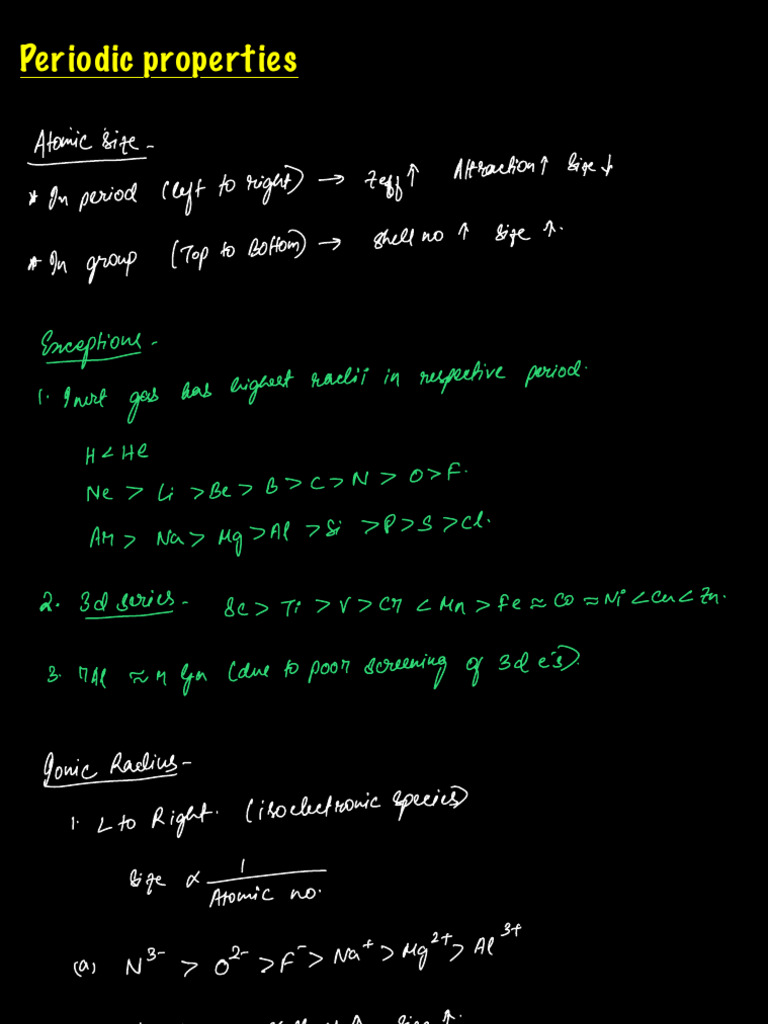 Periodic properties
Atomic size -
* In period (left to right) → Zeff ↑ Attraction ↑ Size ↓
* In group (Top to Bottom) → Shell no ↑ Size ↑.
Exceptions -
1. Inert gas has highest radii in respective period.
H < He
Ne > Li > Be > B > C > N > O > F.
Ar > Na > Mg > Al > Si > P > S > Cl.
2. 3d series - Sc > Ti > V > Cr < Mn > Fe ≈ Co ≈ Ni < Cu < Zn.
3. rAl ≈ r Ga (due to poor screening of 3d e's).
Ionic Radius -
1. L to Right. (isoelectronic species)
Size ∝ 1 / Atomic no.
(a) N³⁻ > O²⁻ > F⁻ > Na⁺ > Mg²⁺ > Al³⁺
↑ Size ↑.